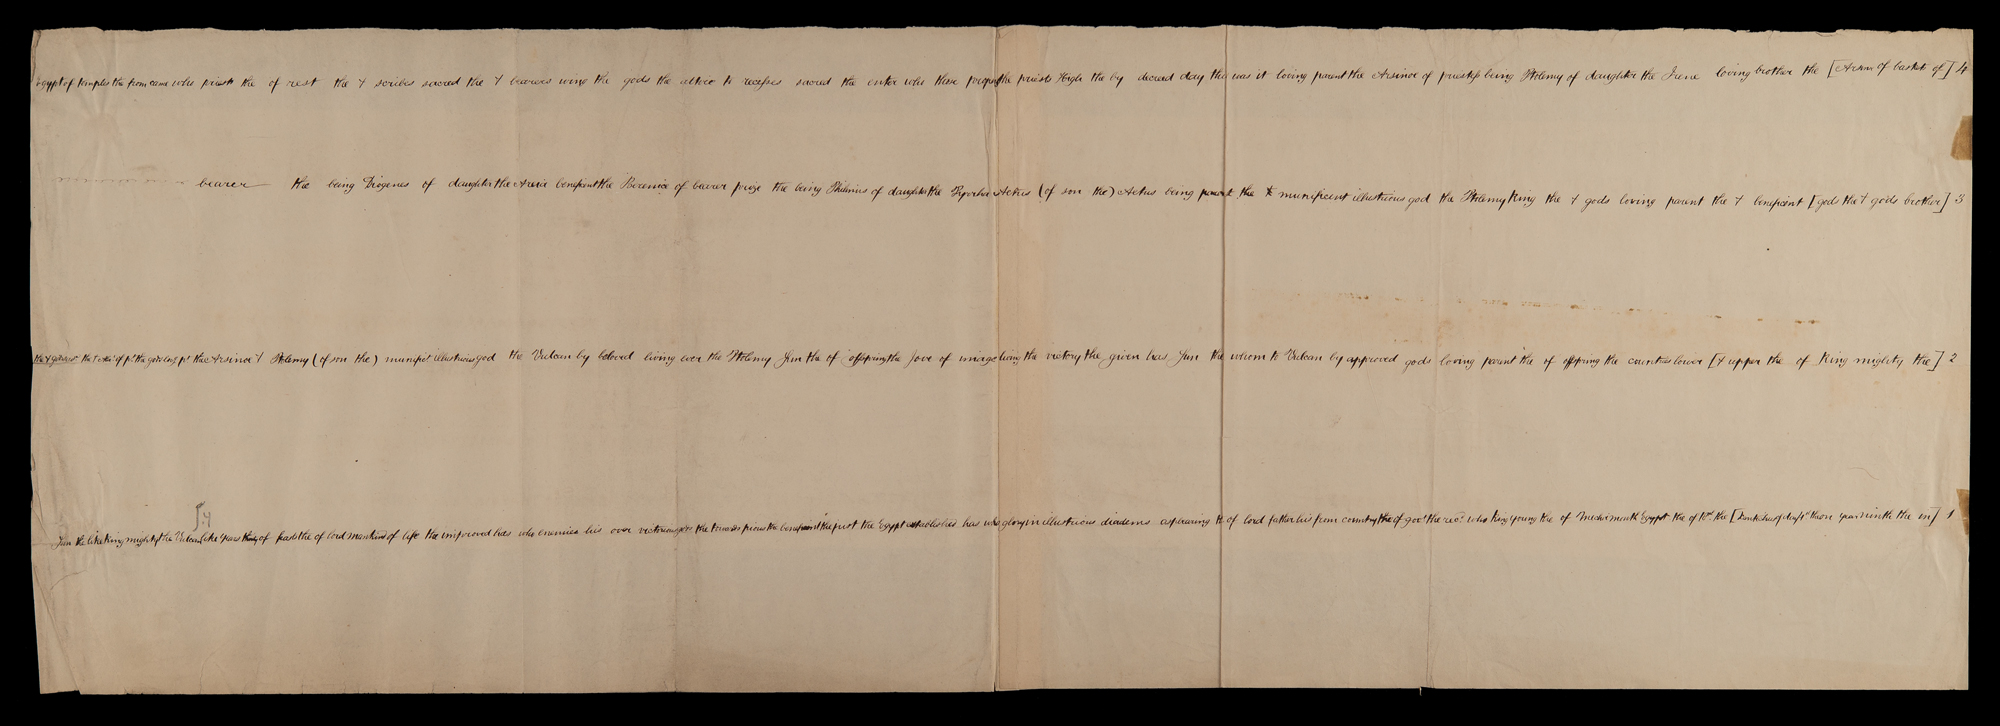 Egypt of temples the from came who priests the of rest the & scribes sacred the & bearers wing the gods the attire to recesses sacred the enter who those prophets the priests High the by decreed day this was it loving parent the Arsinoe of priestess being Ptolemy of daughter the Irene loving brother the [Arsinoe of basket of] 4
bearer the being Diogenes of daughter the Areia beneficent the Berenice of bearer prize the being Philinus of daughter the Pyrrha Aetus (of son the) Aetus being the & munificent illustrious god the Ptolemy King the & gods loving parent the & beneficent [gods the & gods brother] 3
the Arsinoe & Ptolemy (of son the) munift illustrious god the Vulcan by beloved living ever the Ptolemy Sun the of offspring the Jove of image living the victory the given has Sun the whom to Vulcan by approved gods loving parent the of offspring the countries lower [& upper the of King mighty the] 2
5.4
Sun the like King mighty the Vulcan like years thirty of feasts the of lord mankind of life the improved has who enemies his over victorious gods the towards pious the beneficent the just the Egypt established has who glory in illustrious diadems appearing & of lord father his from country the of govt the recd who King young the of Mechir month Egypt the of 18th the year ninth the in] 1